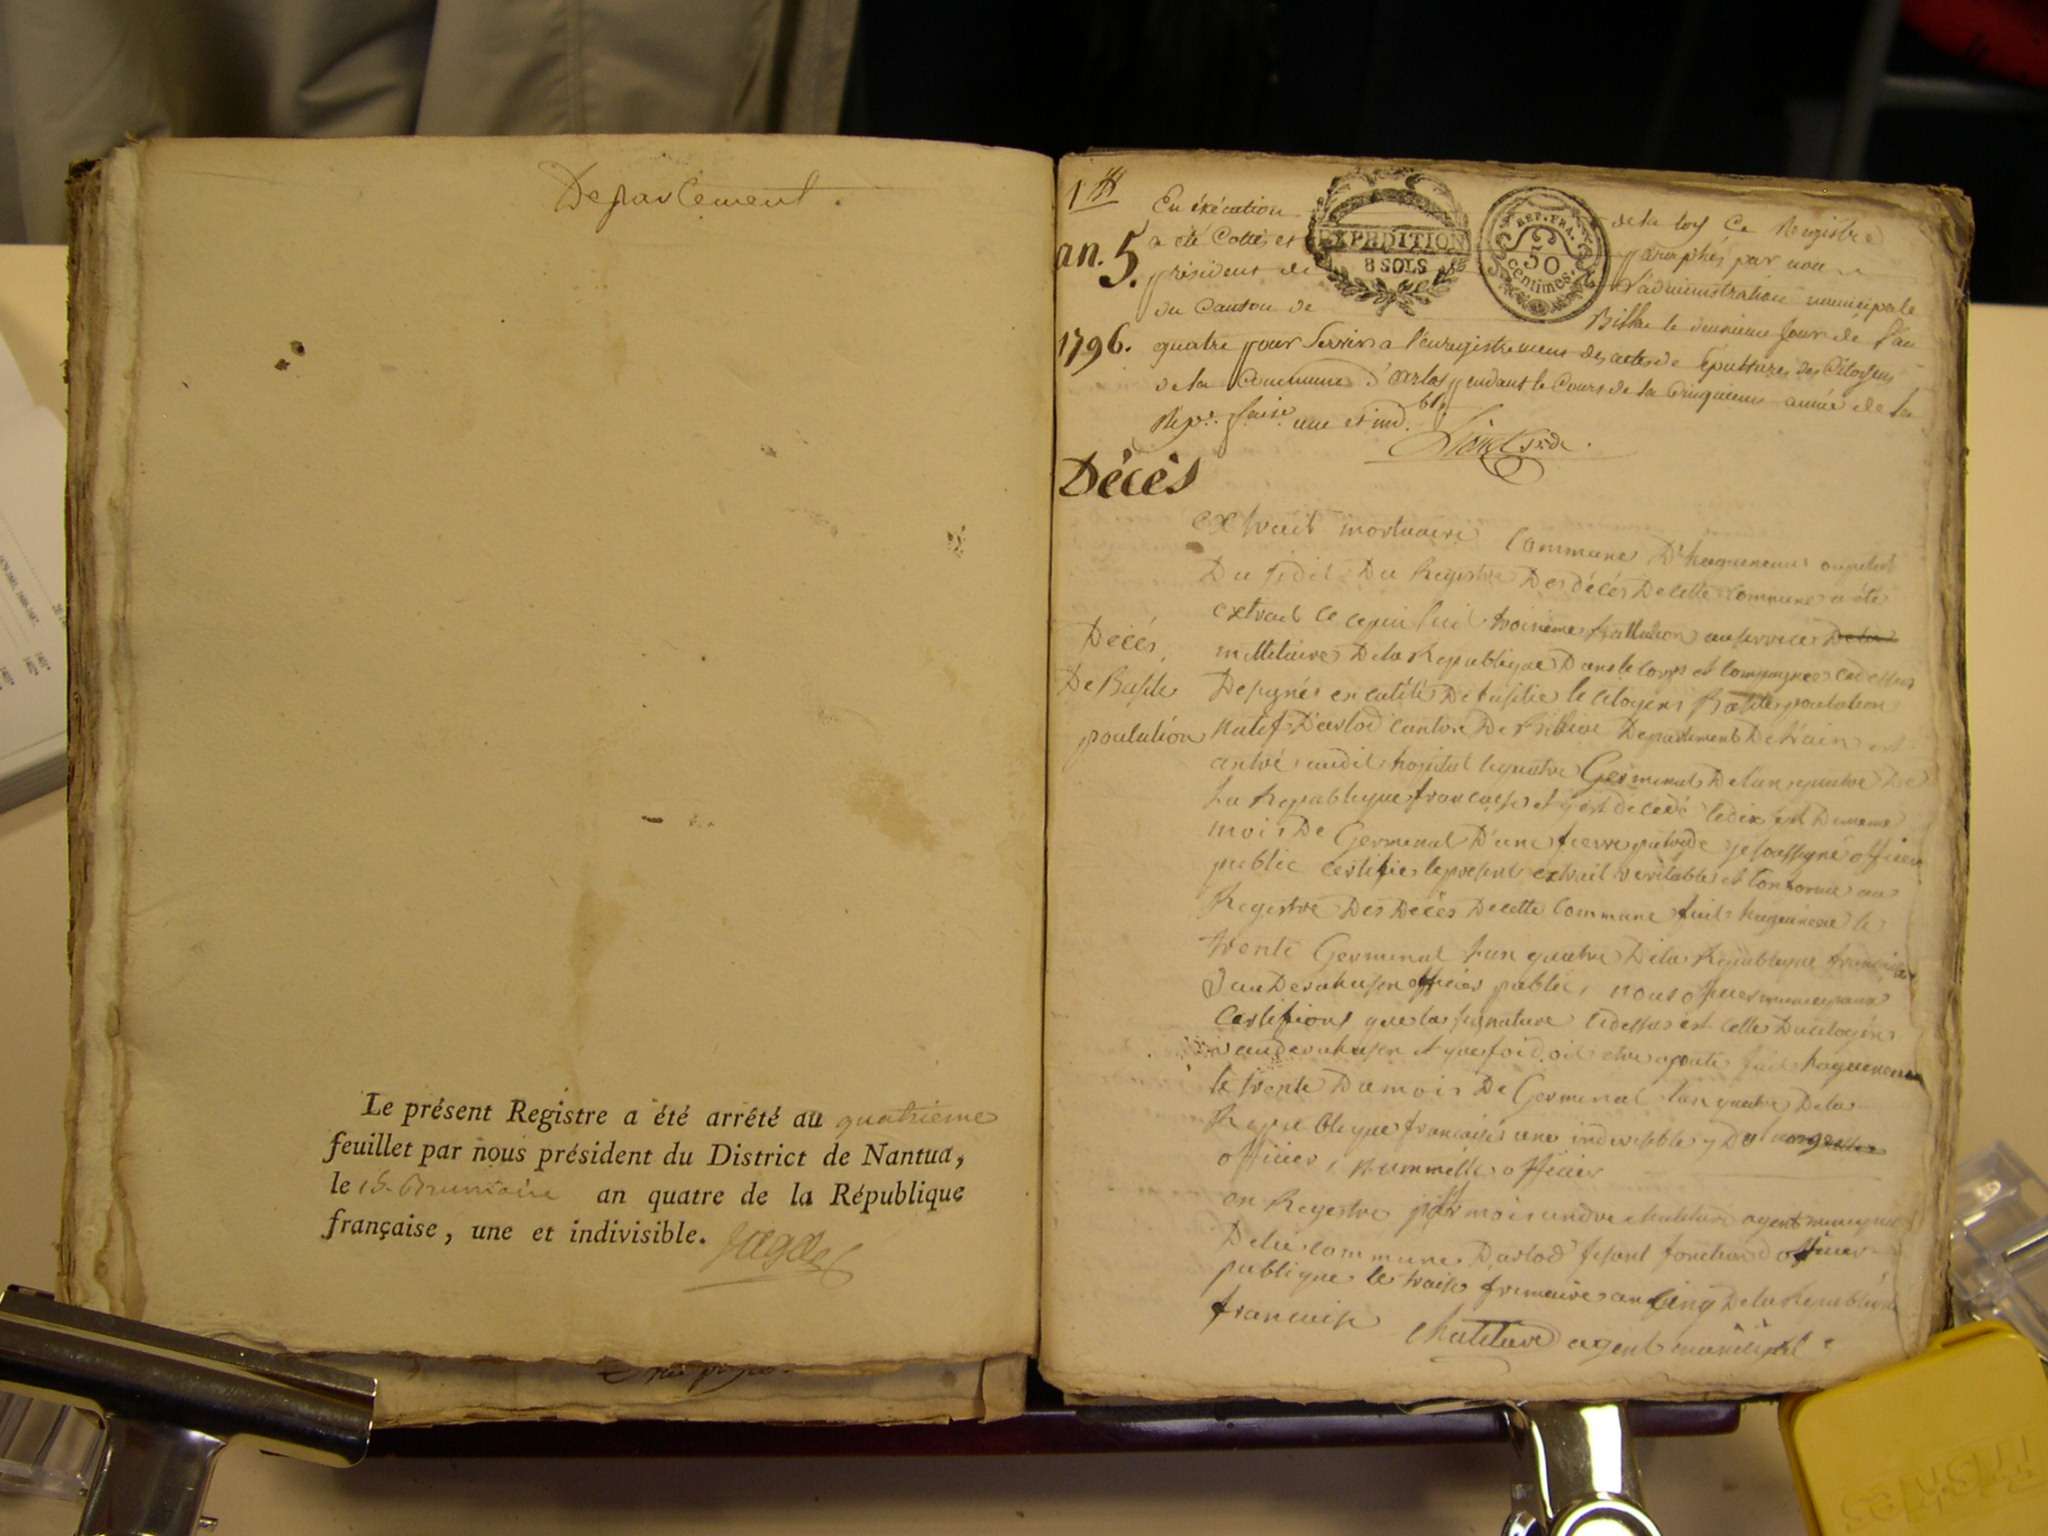 Departement.
Le présent Registre a été arrêté au quatrième
feuillet par nous président du District de Nantua,
le 15 Brumaire an quatre de la République
française, une et indivisible.
1er
an. 5.
1796.
En éxécution de la loy Ce Registre
a été Cottés et paraphés par nou
président de l'administration municipale
du Canton de Billia le deuxieme Jour de l'an
quatre pour Servir a l'enregistrement des actes de Sépulture des Citoyens
de la Commune d'arlod pendant le Cours de la Cinquieme année de la
Repe. faise. une et ind. ble.
EXPEDITION
8 SOLS
REP. FRA.
50
centimes.
Décès
Décés
De Batiste
poulation
extrait mortuaire Commune D'haguenau
Du Registre Des décés De cette Commune a été
extrait ce qui suit troisieme au service De la
militaire De la Republique Dans le Corps et Compagnie
en calité De fusilie le Citoyen Batiste poulation
natif D'arlod canton De Billia Departement De l'ain est
antré audit hopital le quatre Germinal De l'an quatre De
La Republique francaise et y est decedé le dix sept Du meme
mois De Germinal D'une fievre putride je soussigné officier
public certifie le present extrait veritable et Conforme au
Registre Des Décés De cette Commune fait haguenau le
trente Germinal l'an quatre De la Republique francaise
officier public, nous officiers municipaux
Certifions que la signature cidessus est celle Du citoyen
et que foi doit etre ajouté fait haguenau
le trente Du mois De Germinal l'an quatre De la
Republique francaise une indivisible
officier, officier
en Registre par moi andre Chatelard agent municipal
De la commune Darlod fesant fonction d'officier
publique le traise frimaire an Cinq De la Republique
francaise Chatelard agent municipal